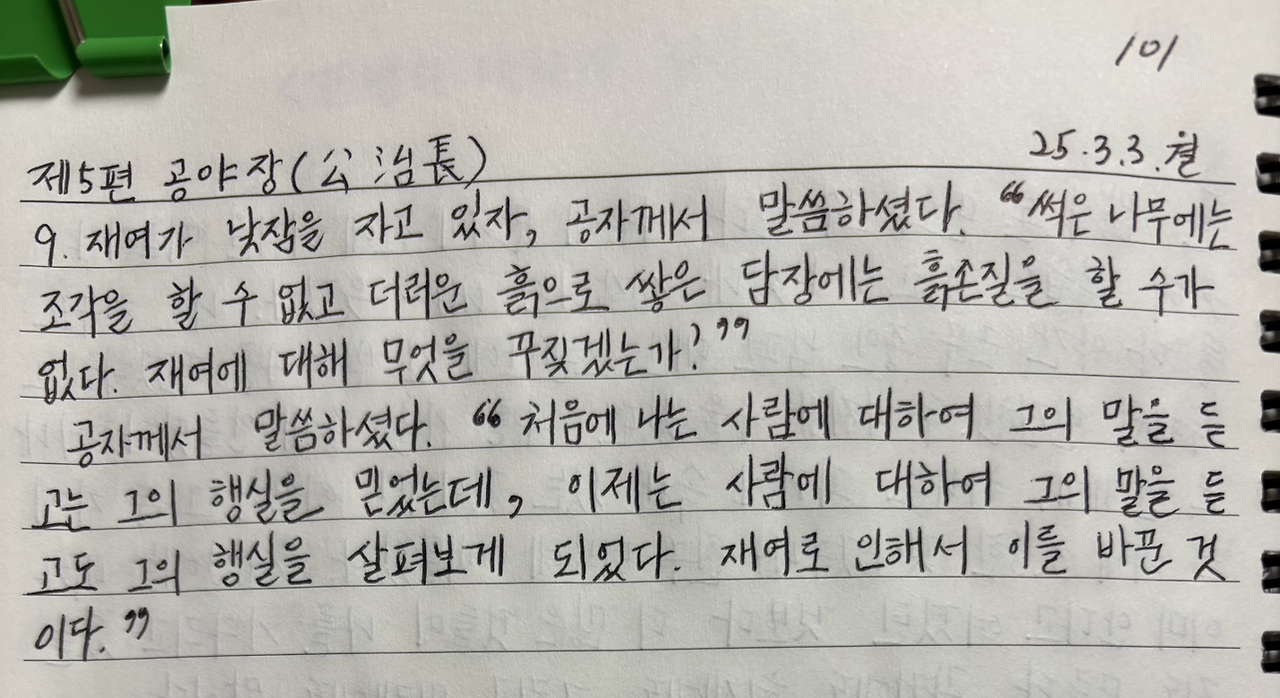 101
제5편 공야장(公冶長) 25.3.3.월
9. 재여가 낮잠을 자고 있자, 공자께서 말씀하셨다. "썩은 나무에는
조각을 할 수 없고 더러운 흙으로 쌓은 담장에는 흙손질을 할 수가
없다. 재여에 대해 무엇을 꾸짖겠는가?"
공자께서 말씀하셨다. "처음에 나는 사람에 대하여 그의 말을 듣
고는 그의 행실을 믿었는데, 이제는 사람에 대하여 그의 말을 듣
고도 그의 행실을 살펴보게 되었다. 재여로 인해서 이를 바꾼 것
이다."